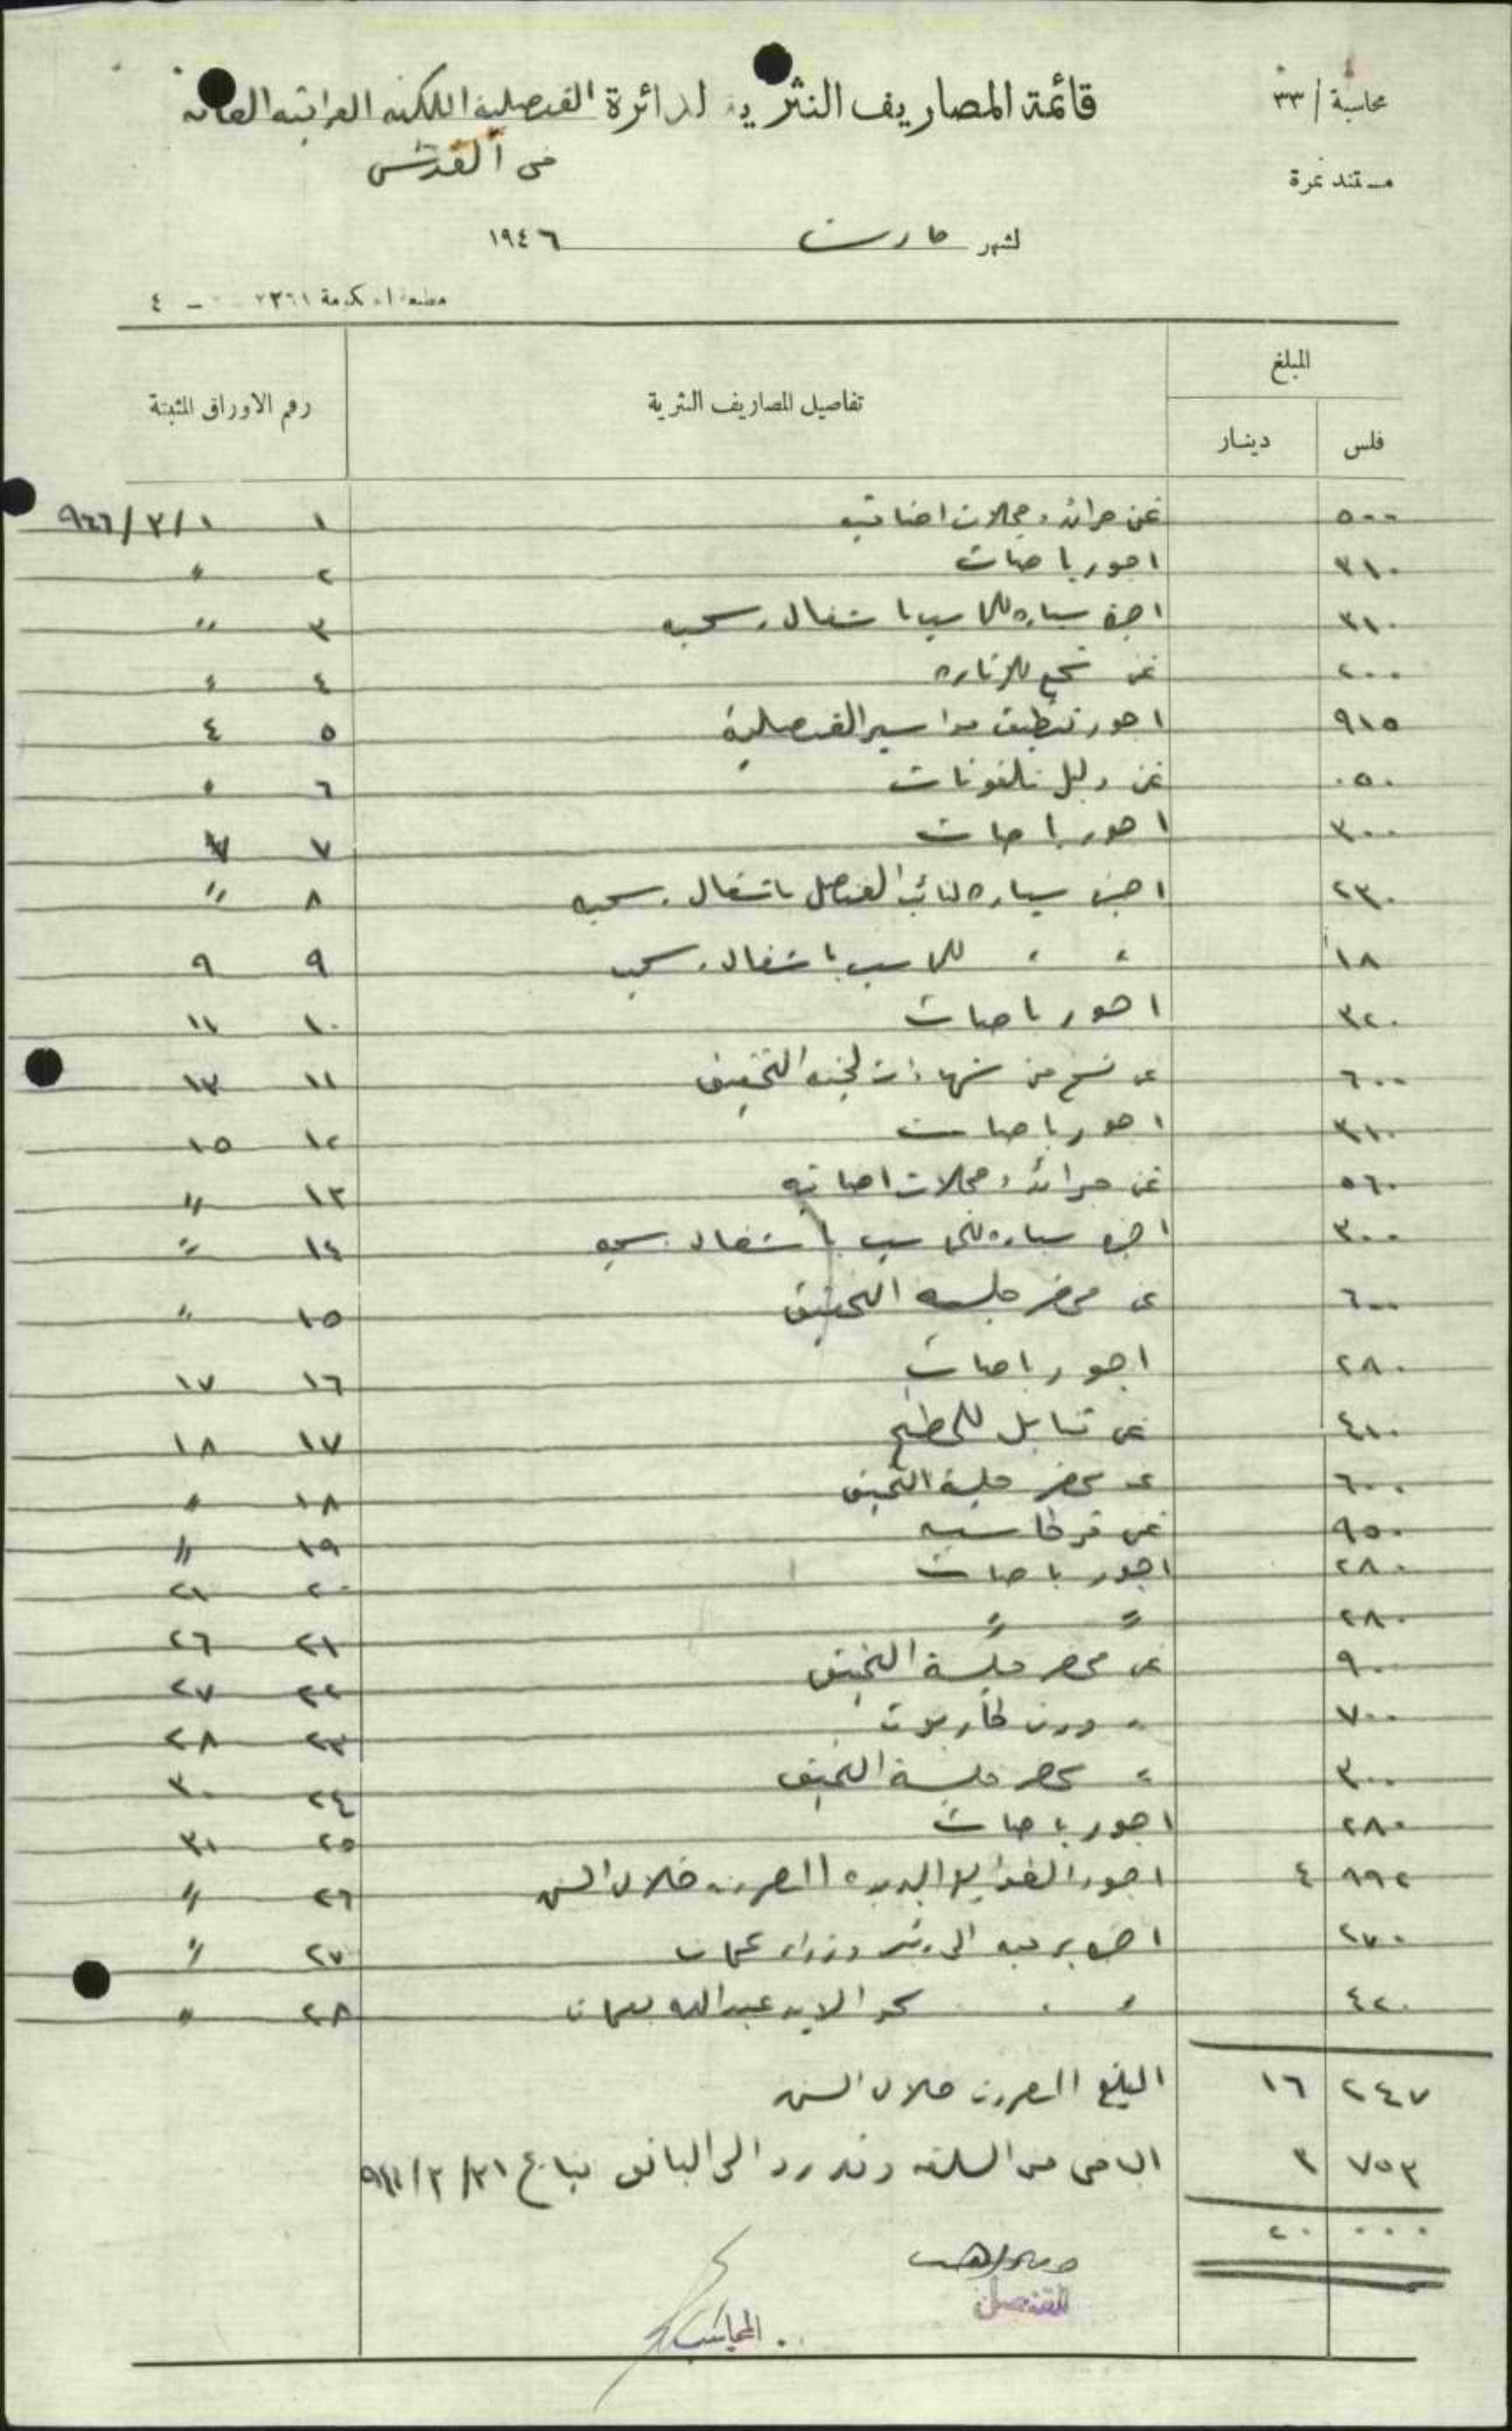 محاسبة / ٣٣
قائمة المصاريف النثرية لدائرة القنصلية الملكية العراقية العامة
في القدس
مستند نمرة
لشهر مارت ١٩٤٦
مطبعة الحكومة
المبلغ
فلس دينار تفاصيل المصاريف النثرية رقم الاوراق المثبتة
٥٠٠ ثمن جرائد ومجلات اضافية ١ ١/٣/٩٤٦
٣١٠ اجور باصات ٢ "
٣١٠ اجرة سيارة للمحاسب باشغال رسمية ٣ "
٢٠٠ ثمن ٤ "
٩١٥ اجور تنظيف مواسير القنصلية ٥ ٤
٠٥٠ ثمن دليل تلفونات ٦ "
٣٠٠ اجور باصات ٧ ٧
٢٣٠ اجرة سيارة لنائب القنصل باشغال رسمية ٨ "
١٨٠ " " للمحاسب باشغال رسمية ٩ ٩
٣٢٠ اجور باصات ١٠ ١١
٦٠٠ ثمن نسخ من شهادات لجنة التحقيق ١١ ١٣
٣١٠ اجور باصات ١٢ ١٥
٥٦٠ ثمن جرائد ومجلات اضافية ١٣ "
٣٠٠ اجرة سيارة للمحاسب باشغال رسمية ١٤ "
٦٠٠ ثمن محضر جلسة التحقيق ١٥ "
٢٨٠ اجور باصات ١٦ ١٧
٤١٠ ثمن للمطبخ ١٧ ١٨
٦٠٠ ثمن محضر جلسة التحقيق ١٨ "
٩٥٠ ثمن قرطاسية ١٩ "
٢٨٠ اجور باصات ٢٠ ٢١
٢٨٠ " " ٢١ ٢٦
٩٠٠ ثمن محضر جلسة التحقيق ٢٢ ٢٧
٧٠٠ " ورق كاربون ٢٣ ٢٨
٣٠٠ " محضر جلسة التحقيق ٢٤ ٣٠
٢٨٠ اجور باصات ٢٥ ٣١
٨٩٢ ٤ اجور الطوابع البريدية المصروفة خلال الشهر ٢٦ "
٢٧٠ اجرة برقية الى رئيس وزراء عمان ٢٧ "
٤٢٠ " " سمو الامير عبدالله بعمان ٢٨ "
٢٤٧ ١٦ المبلغ المصروف خلال الشهر
٧٥٣ ٣ الباقي من السلفة وقد رد الى البانق بتاريخ ٣١/٣/٩٤٦
٠٠٠ ٢٠
القنصل
المحاسب